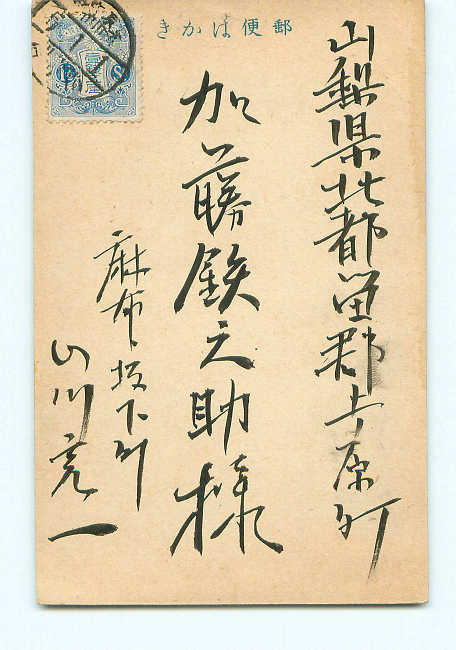 郵便はかき
山梨県北都留郡上原町
加藤鉄之助様
麻布坂下町
川亮一